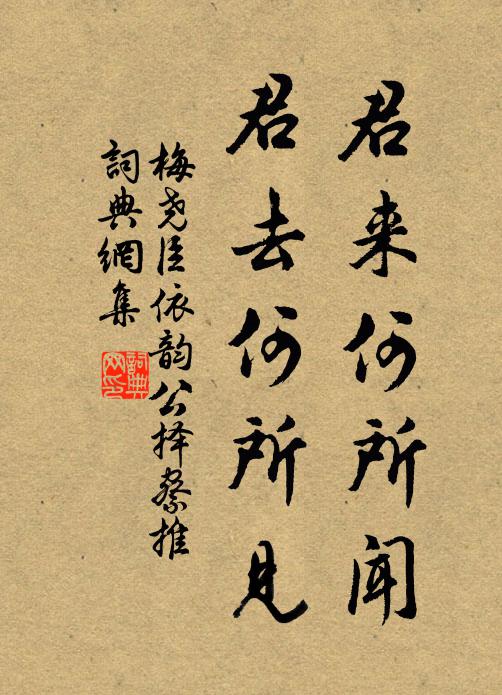 君来何所闻
君去何所見
梅尧臣依韵公择察推
詞典網集
詞典网印